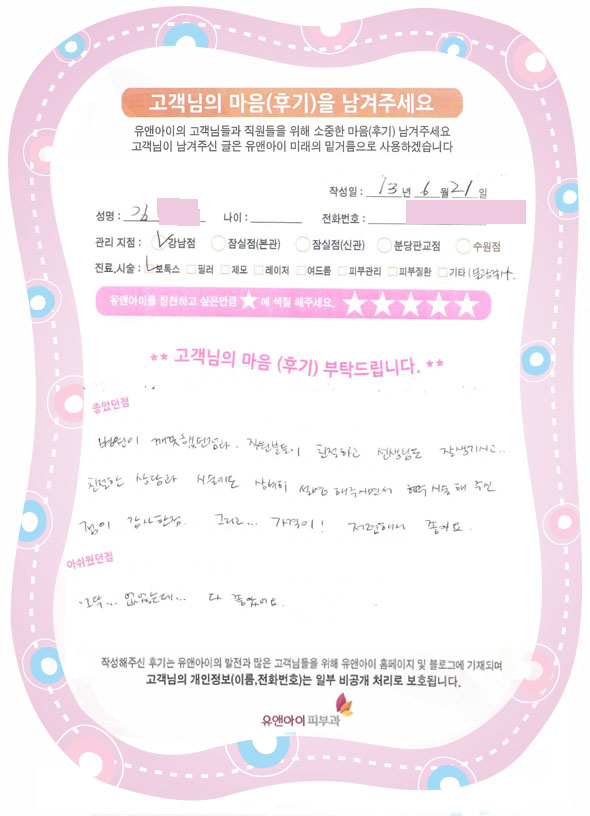 고객님의 마음(후기)을 남겨주세요
유앤아이의 고객님들과 직원들을 위해 소중한 마음(후기) 남겨주세요
고객님이 남겨주신 글은 유앤아이 미래의 밑거름으로 사용하겠습니다
작성일 : 13 년 6 월 21 일
성명 : 김 나이 : 전화번호 :
관리 지점 : 강남점 잠실점(본관) 잠실점(신관) 분당판교점 수원점
진료,시술 : 보톡스 필러 제모 레이저 여드름 피부관리 피부질환 기타 (
유앤아이를 칭찬하고 싶은만큼 ★ 에 색칠 해주세요. ★★★★★
** 고객님의 마음 (후기) 부탁드립니다. **
좋았던점
병원이 깨끗했던점과. 직원분들이 친절하고 선생님도 잘생기시고...
친절한 상담과 시술에도 상세히 설명 해주시면서 시술 해 주신
점이 감사한점. 그리고... 가격이! 저렴해서 좋아요.
아쉬웠던점
없었는데... 다 좋았어요.
작성해주신 후기는 유앤아이의 발전과 많은 고객님들을 위해 유앤아이 홈페이지 및 블로그에 기재되며
고객님의 개인정보(이름,전화번호)는 일부 비공개 처리로 보호됩니다.
유앤아이피부과